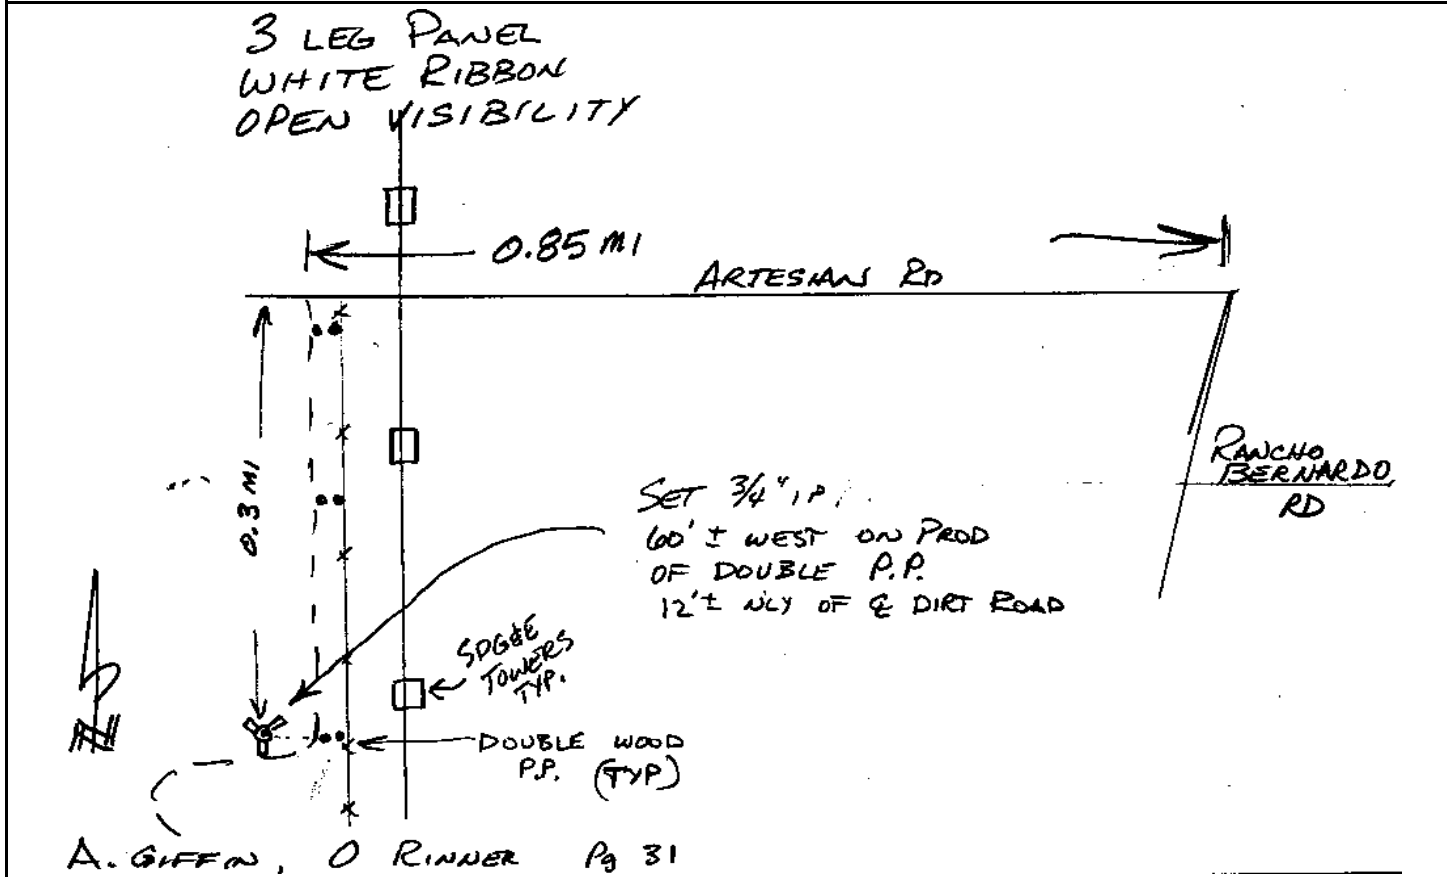 3 LEG PANEL
WHITE RIBBON
OPEN VISIBILITY
0.85 MI
ARTESIAN RD
0.3 MI
RANCHO
BERNARDO
RD
SET 3/4" I.P.
60' ± WEST ON PROD
OF DOUBLE P.P.
12' ± NLY OF ℄ DIRT ROAD
SDG&E
TOWERS
TYP.
DOUBLE WOOD
P.P. (TYP)
N
A. GIFFIN, O RINNER Pg 31